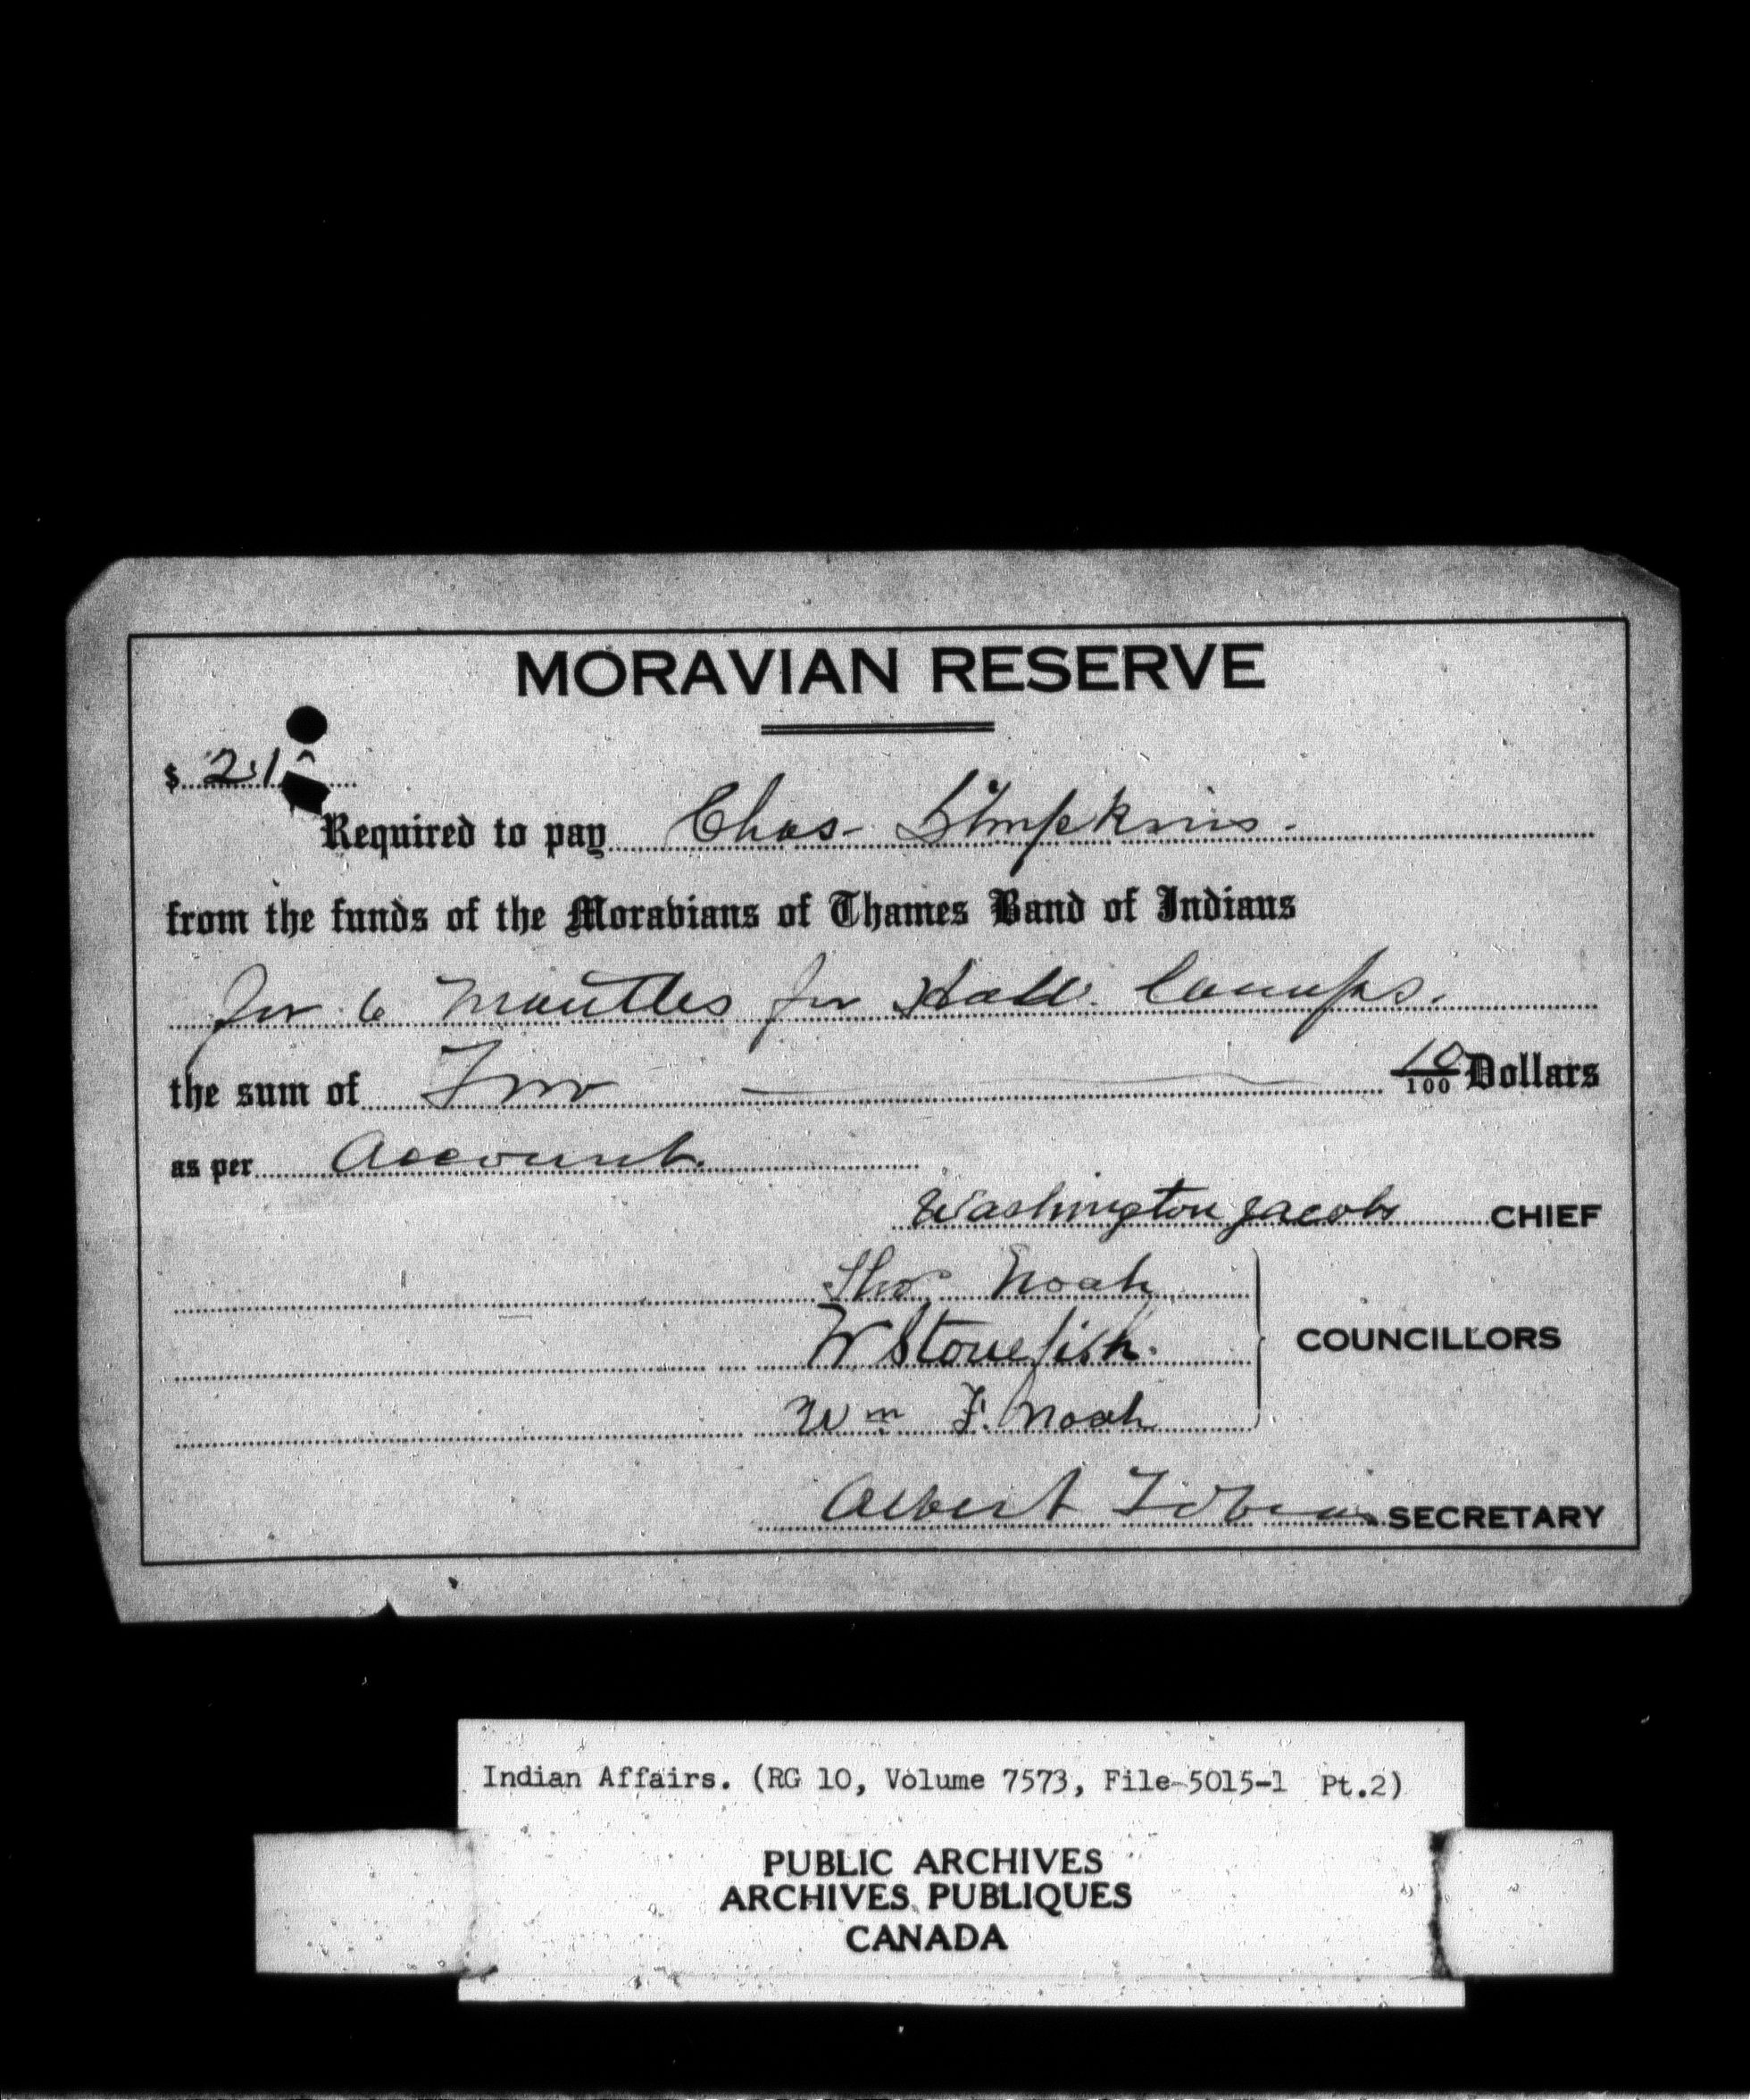 MORAVIAN RESERVE
$ 2.1
Required to pay Chas. Simpkins.
from the funds of the Moravians of Thames Band of Indians
for 6 mantles for Hall Lamps.
the sum of Two 10/100 Dollars
as per Account.
Washington Jacobs CHIEF
Thos Noah
W Stonefish. COUNCILLORS
Wm F. Noah
Albert Tobias SECRETARY
Indian Affairs. (RG 10, Volume 7573, File 5015-1 Pt.2)
PUBLIC ARCHIVES
ARCHIVES PUBLIQUES
CANADA